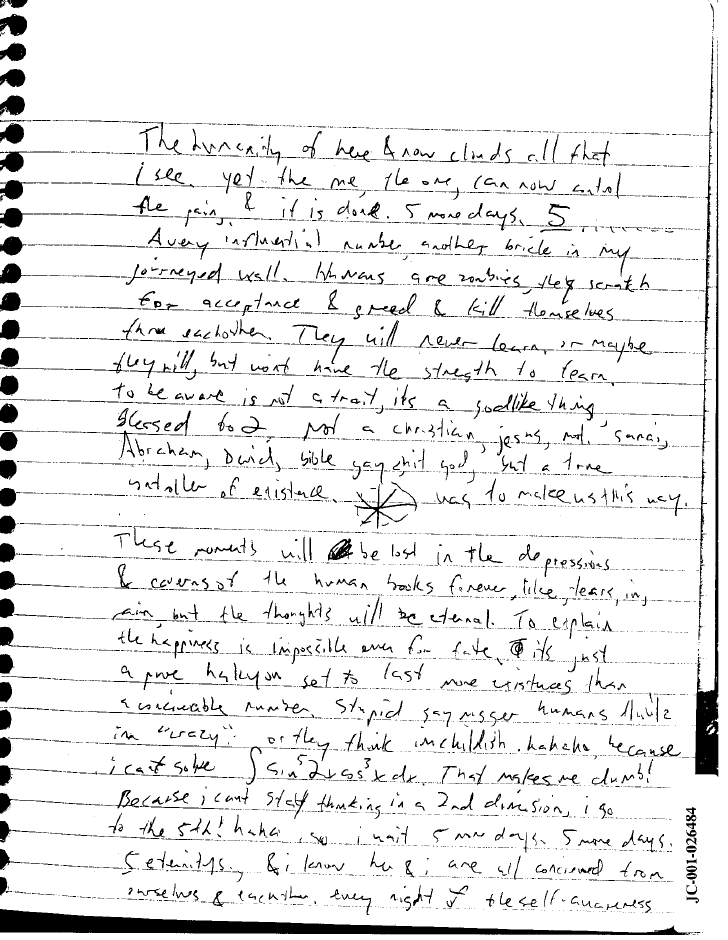 The humanity of here & now clouds all that
i see. yet the me, the one, can now control
the pain, & it is done. 5 more days. 5.......
A very influential number, another brick in my
journeyed wall. Humans are zombies, they scratch
for acceptance & greed & kill themselves
thru eachother. They will never learn, or maybe
they will, but wont have the strength to learn.
to be aware is not a trait, its a godlike thing,
blessed to 2, not a christian, jesus, sanai,
Abraham, David, bible gay shit god, but a true
controller of existence. was to make us this way.
These moments will be lost in the depressions
& caverns of the human books forever, like, tears, in,
rain, but the thoughts will be eternal. To explain
the happiness is impossible even for fate, its just
a pure halcyon set to last more existences than
a concievable number. Stupid gay nigger humans think
im "crazy". or they think im childish. hahaha, because
i cant solve ∫ sin⁵2x cos³x dx. That makes me dumb!
Because i cant stay thinking in a 2nd dimension, i go
to the 5th! haha. so i wait 5 more days. 5 more days.
5 eternitys., & i know her & i are all concieved from
ourselves & eachother. every night the self-awareness
JC-001-026484